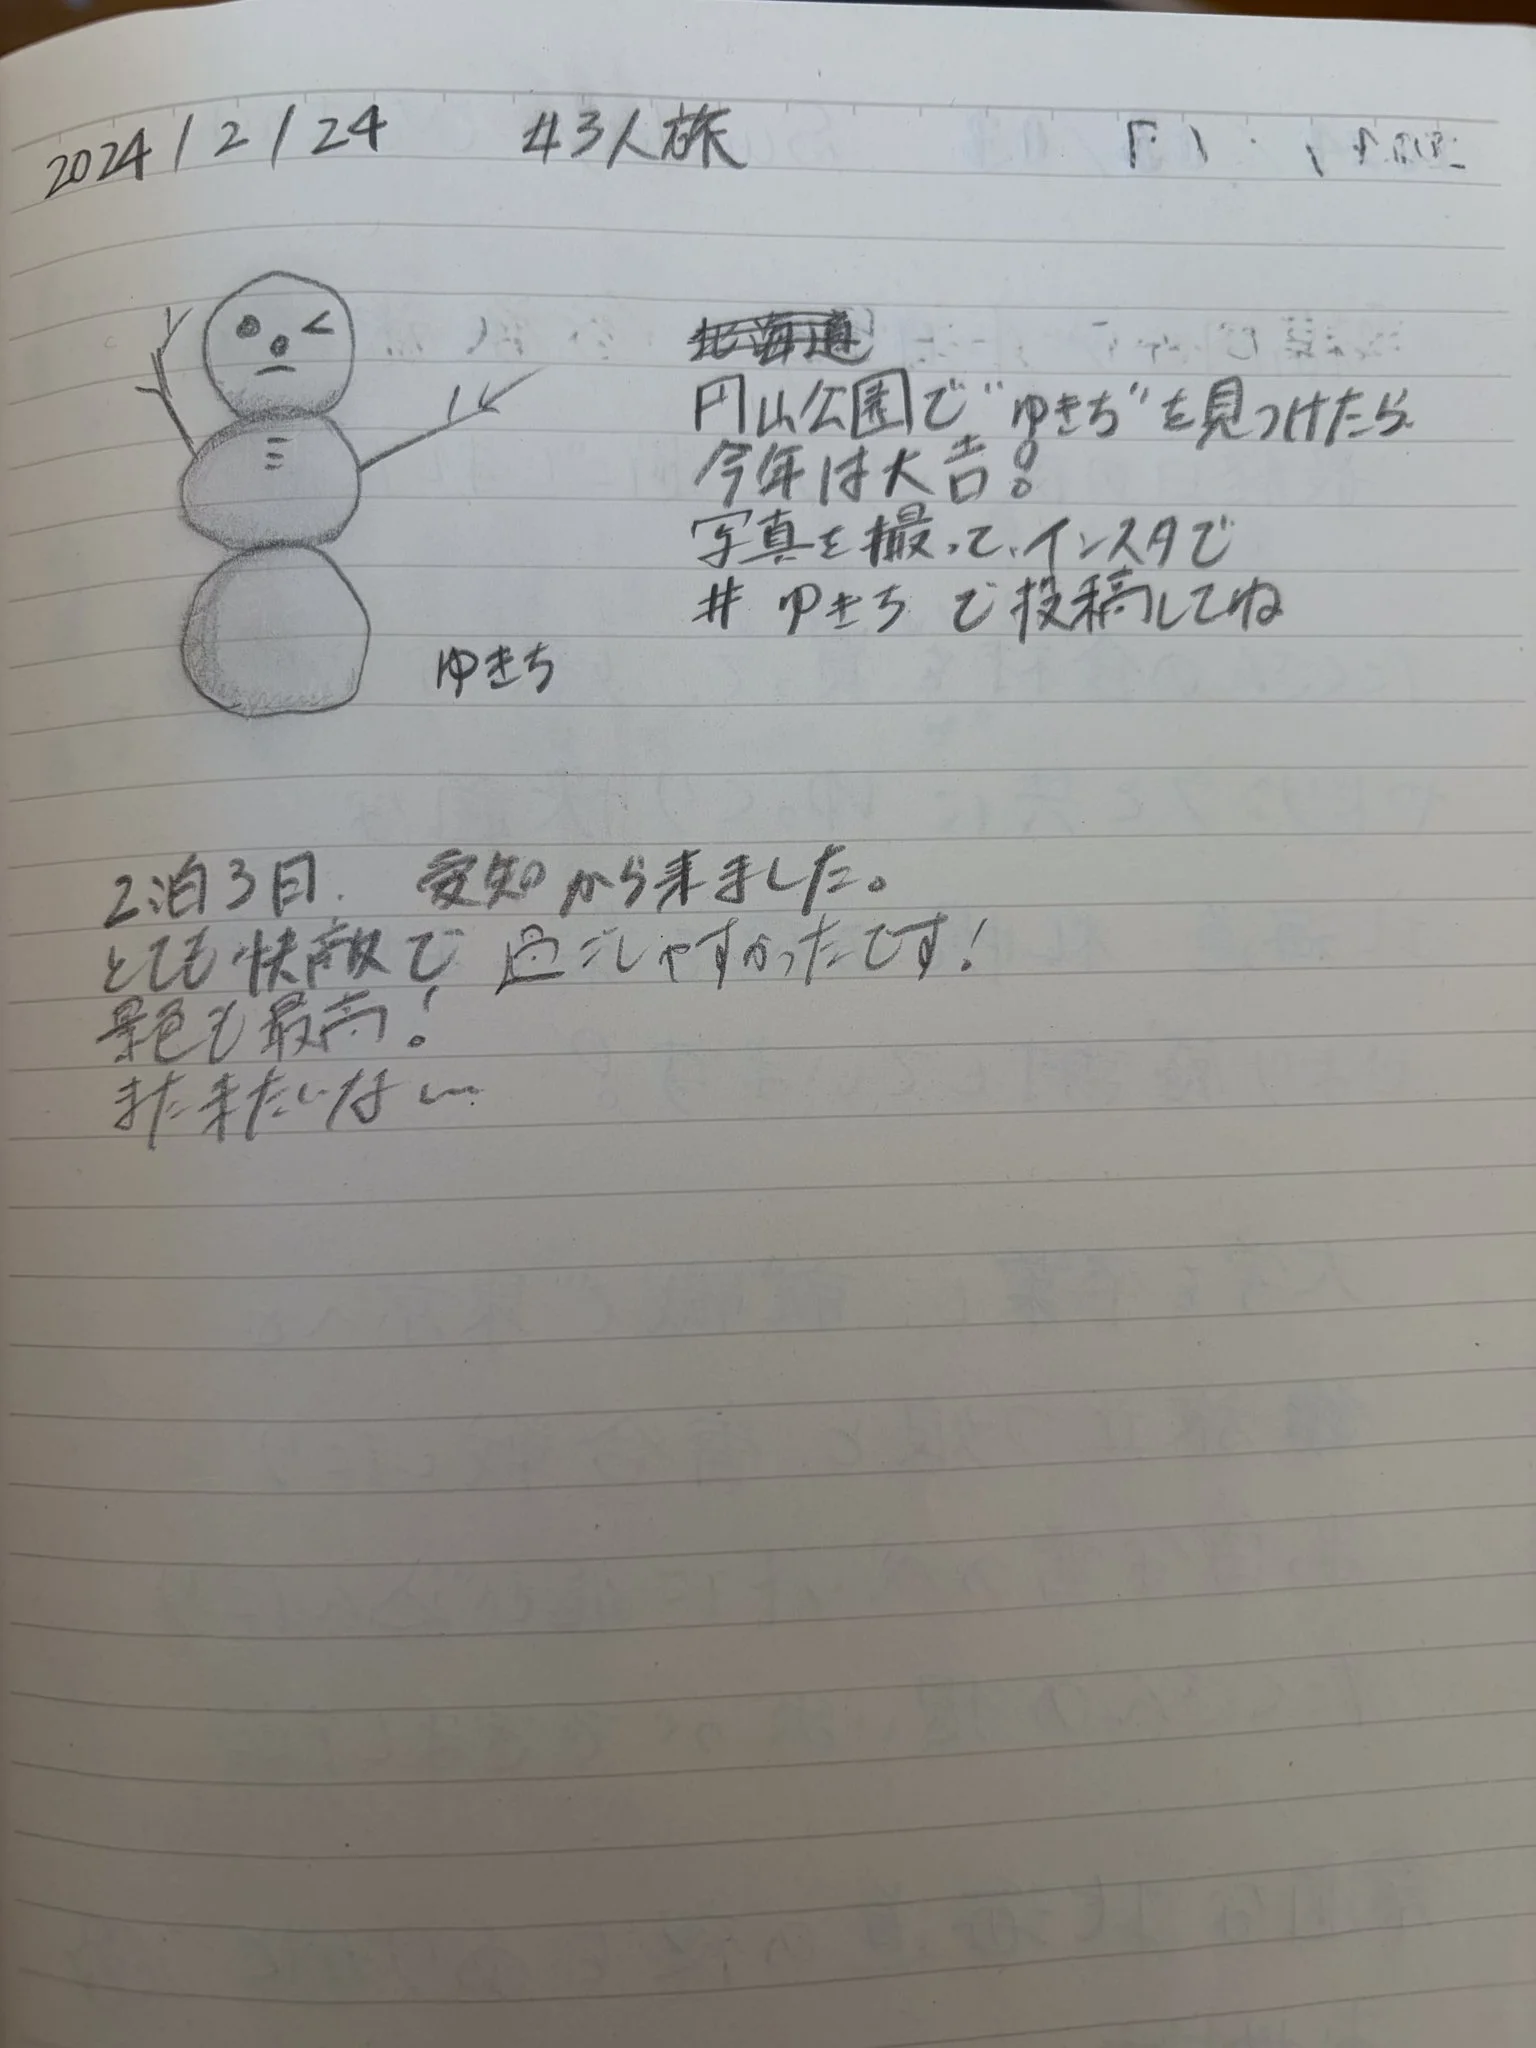 2024/2/24 #3人旅
北海道
円山公園で"ゆきち"を見つけたら
今年は大吉!
写真を撮って、インスタで
# ゆきち で投稿してね
ゆきち
2泊3日. 愛知から来ました。
とても快敵で 過ごしやすかったです!
景色も最高!
また来たいなぁ〜